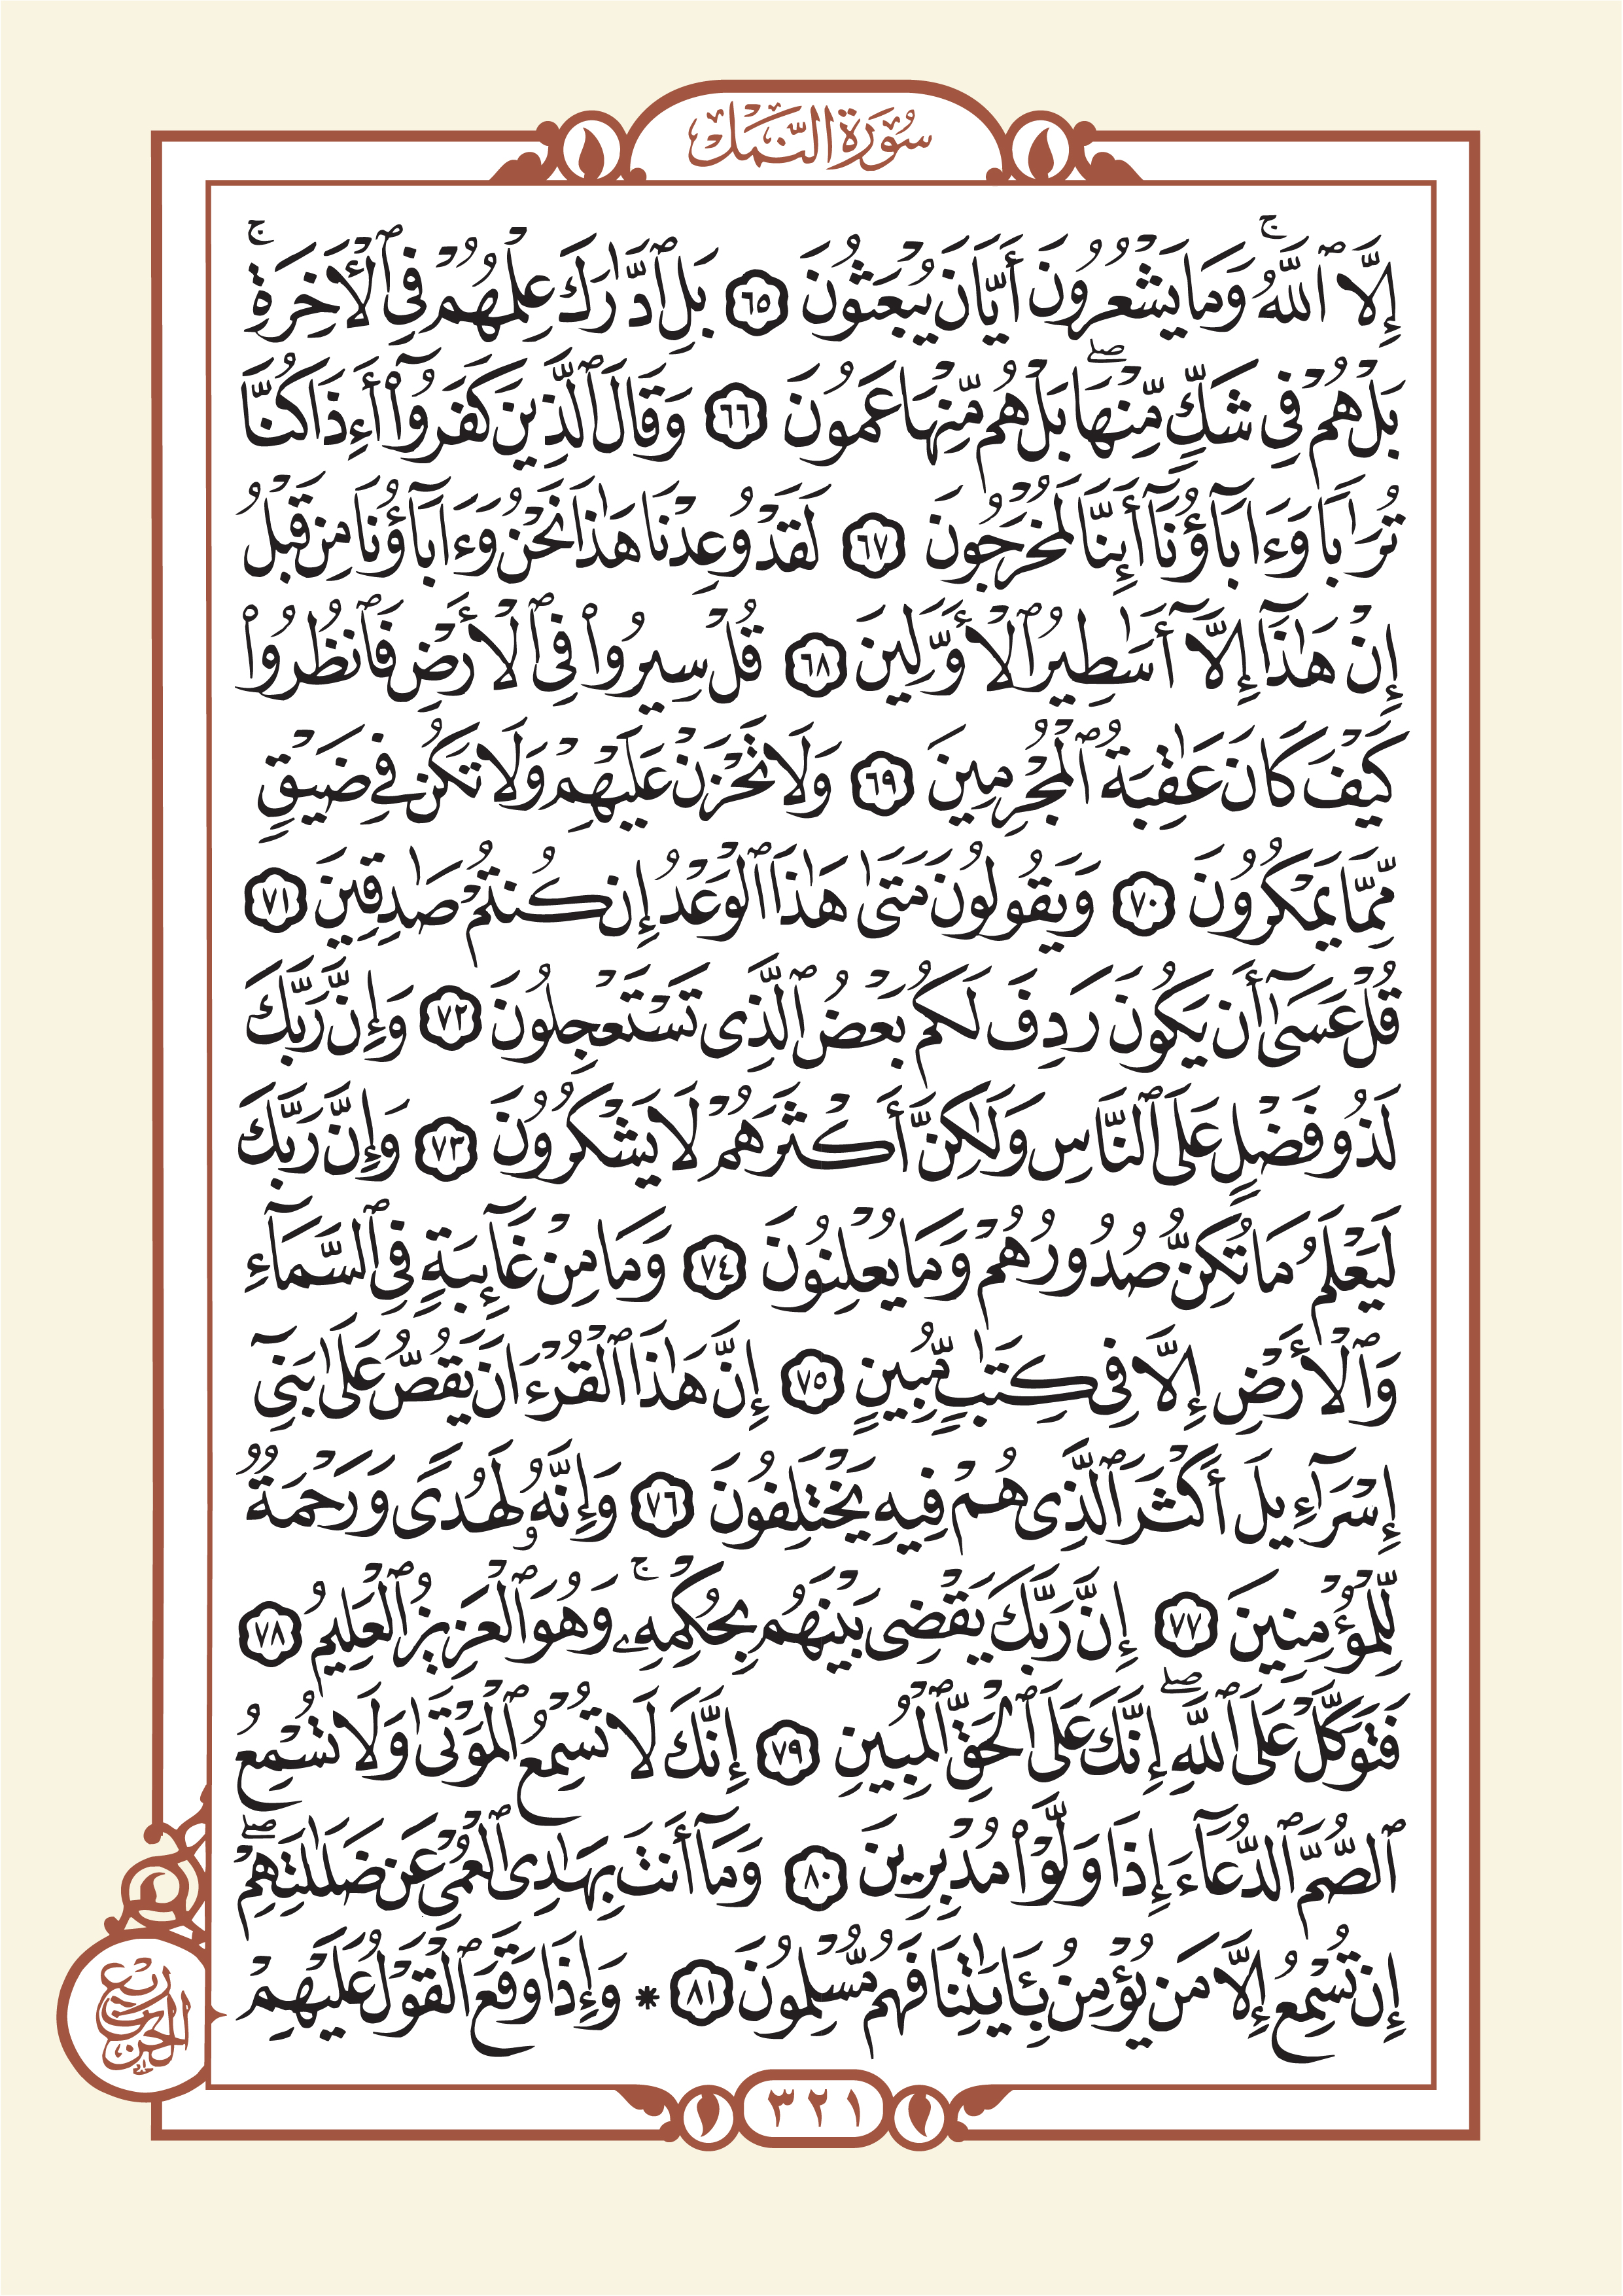 سُورَةُ النَّمْلِ
إِلَّا ٱللَّهُۚ وَمَا يَشْعُرُونَ أَيَّانَ يُبْعَثُونَ ٦٥ بَلِ ٱدَّٰرَكَ عِلْمُهُمْ فِي ٱلْأَخِرَةِۚ
بَلْ هُمْ فِي شَكٍّ مِّنْهَاۖ بَلْ هُم مِّنْهَا عَمُونَ ٦٦ وَقَالَ ٱلَّذِينَ كَفَرُوٓاْ أَءِذَا كُنَّا
تُرَٰبًا وَءَابَآؤُنَآ أَئِنَّا لَمُخْرَجُونَ ٦٧ لَقَدْ وُعِدْنَا هَٰذَا نَحْنُ وَءَابَآؤُنَا مِن قَبْلُ
إِنْ هَٰذَآ إِلَّآ أَسَٰطِيرُ ٱلْأَوَّلِينَ ٦٨ قُلْ سِيرُواْ فِي ٱلْأَرْضِ فَٱنظُرُواْ
كَيْفَ كَانَ عَٰقِبَةُ ٱلْمُجْرِمِينَ ٦٩ وَلَا تَحْزَنْ عَلَيْهِمْ وَلَا تَكُن فِي ضَيْقٍ
مِّمَّا يَمْكُرُونَ ٧٠ وَيَقُولُونَ مَتَىٰ هَٰذَا ٱلْوَعْدُ إِن كُنتُمْ صَٰدِقِينَ ٧١
قُلْ عَسَىٰٓ أَن يَكُونَ رَدِفَ لَكُم بَعْضُ ٱلَّذِي تَسْتَعْجِلُونَ ٧٢ وَإِنَّ رَبَّكَ
لَذُو فَضْلٍ عَلَى ٱلنَّاسِ وَلَٰكِنَّ أَكْثَرَهُمْ لَا يَشْكُرُونَ ٧٣ وَإِنَّ رَبَّكَ
لَيَعْلَمُ مَا تُكِنُّ صُدُورُهُمْ وَمَا يُعْلِنُونَ ٧٤ وَمَا مِنْ غَآئِبَةٍ فِي ٱلسَّمَآءِ
وَٱلْأَرْضِ إِلَّا فِي كِتَٰبٍ مُّبِينٍ ٧٥ إِنَّ هَٰذَا ٱلْقُرْءَانَ يَقُصُّ عَلَىٰ بَنِيٓ
إِسْرَٰٓءِيلَ أَكْثَرَ ٱلَّذِي هُمْ فِيهِ يَخْتَلِفُونَ ٧٦ وَإِنَّهُۥ لَهُدًى وَرَحْمَةٌ
لِّلْمُؤْمِنِينَ ٧٧ إِنَّ رَبَّكَ يَقْضِي بَيْنَهُم بِحُكْمِهِۦۚ وَهُوَ ٱلْعَزِيزُ ٱلْعَلِيمُ ٧٨
فَتَوَكَّلْ عَلَى ٱللَّهِۖ إِنَّكَ عَلَى ٱلْحَقِّ ٱلْمُبِينِ ٧٩ إِنَّكَ لَا تُسْمِعُ ٱلْمَوْتَىٰ وَلَا تُسْمِعُ
ٱلصُّمَّ ٱلدُّعَآءَ إِذَا وَلَّوْاْ مُدْبِرِينَ ٨٠ وَمَآ أَنتَ بِهَٰدِي ٱلْعُمْيِ عَن ضَلَٰلَتِهِمْۖ
إِن تُسْمِعُ إِلَّا مَن يُؤْمِنُ بِـَٔايَٰتِنَا فَهُم مُّسْلِمُونَ ٨١ * وَإِذَا وَقَعَ ٱلْقَوْلُ عَلَيْهِمْ
رُبْع
الحِزْب
٣٢١